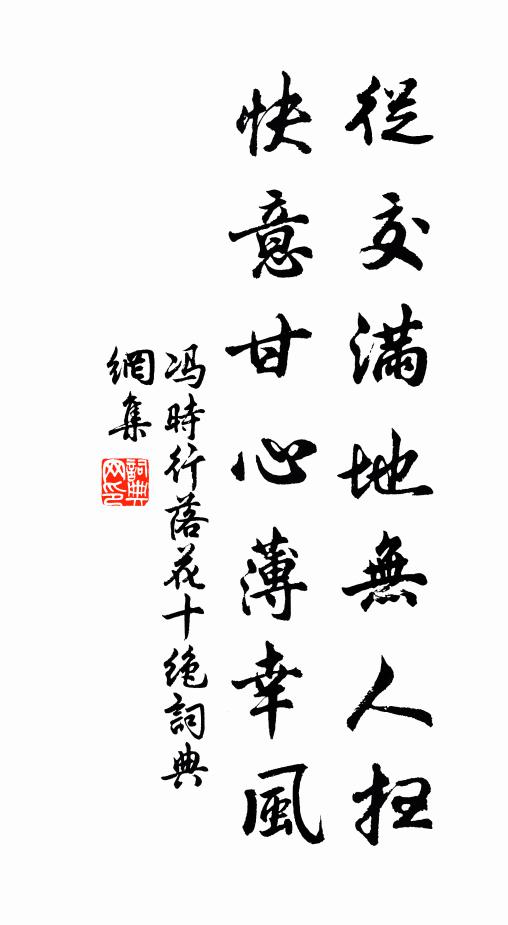 從交滿地無人扫
快意甘心薄幸風
冯時行落花十絶詞典
網集
詞典
网印